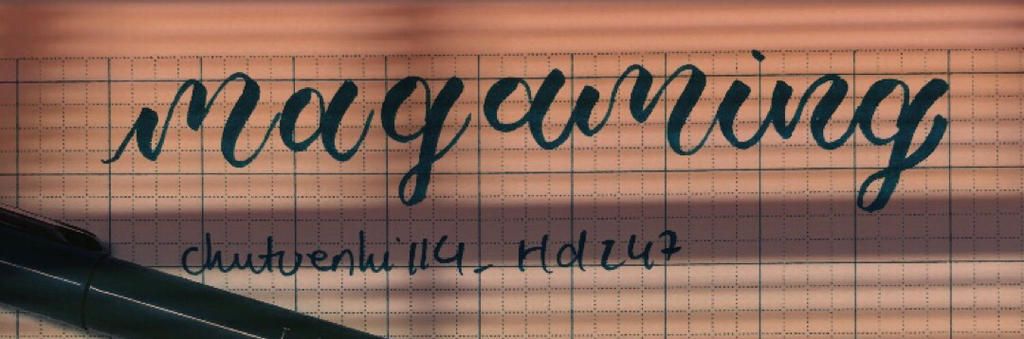 magaming
chutuenhi114_Hdz47